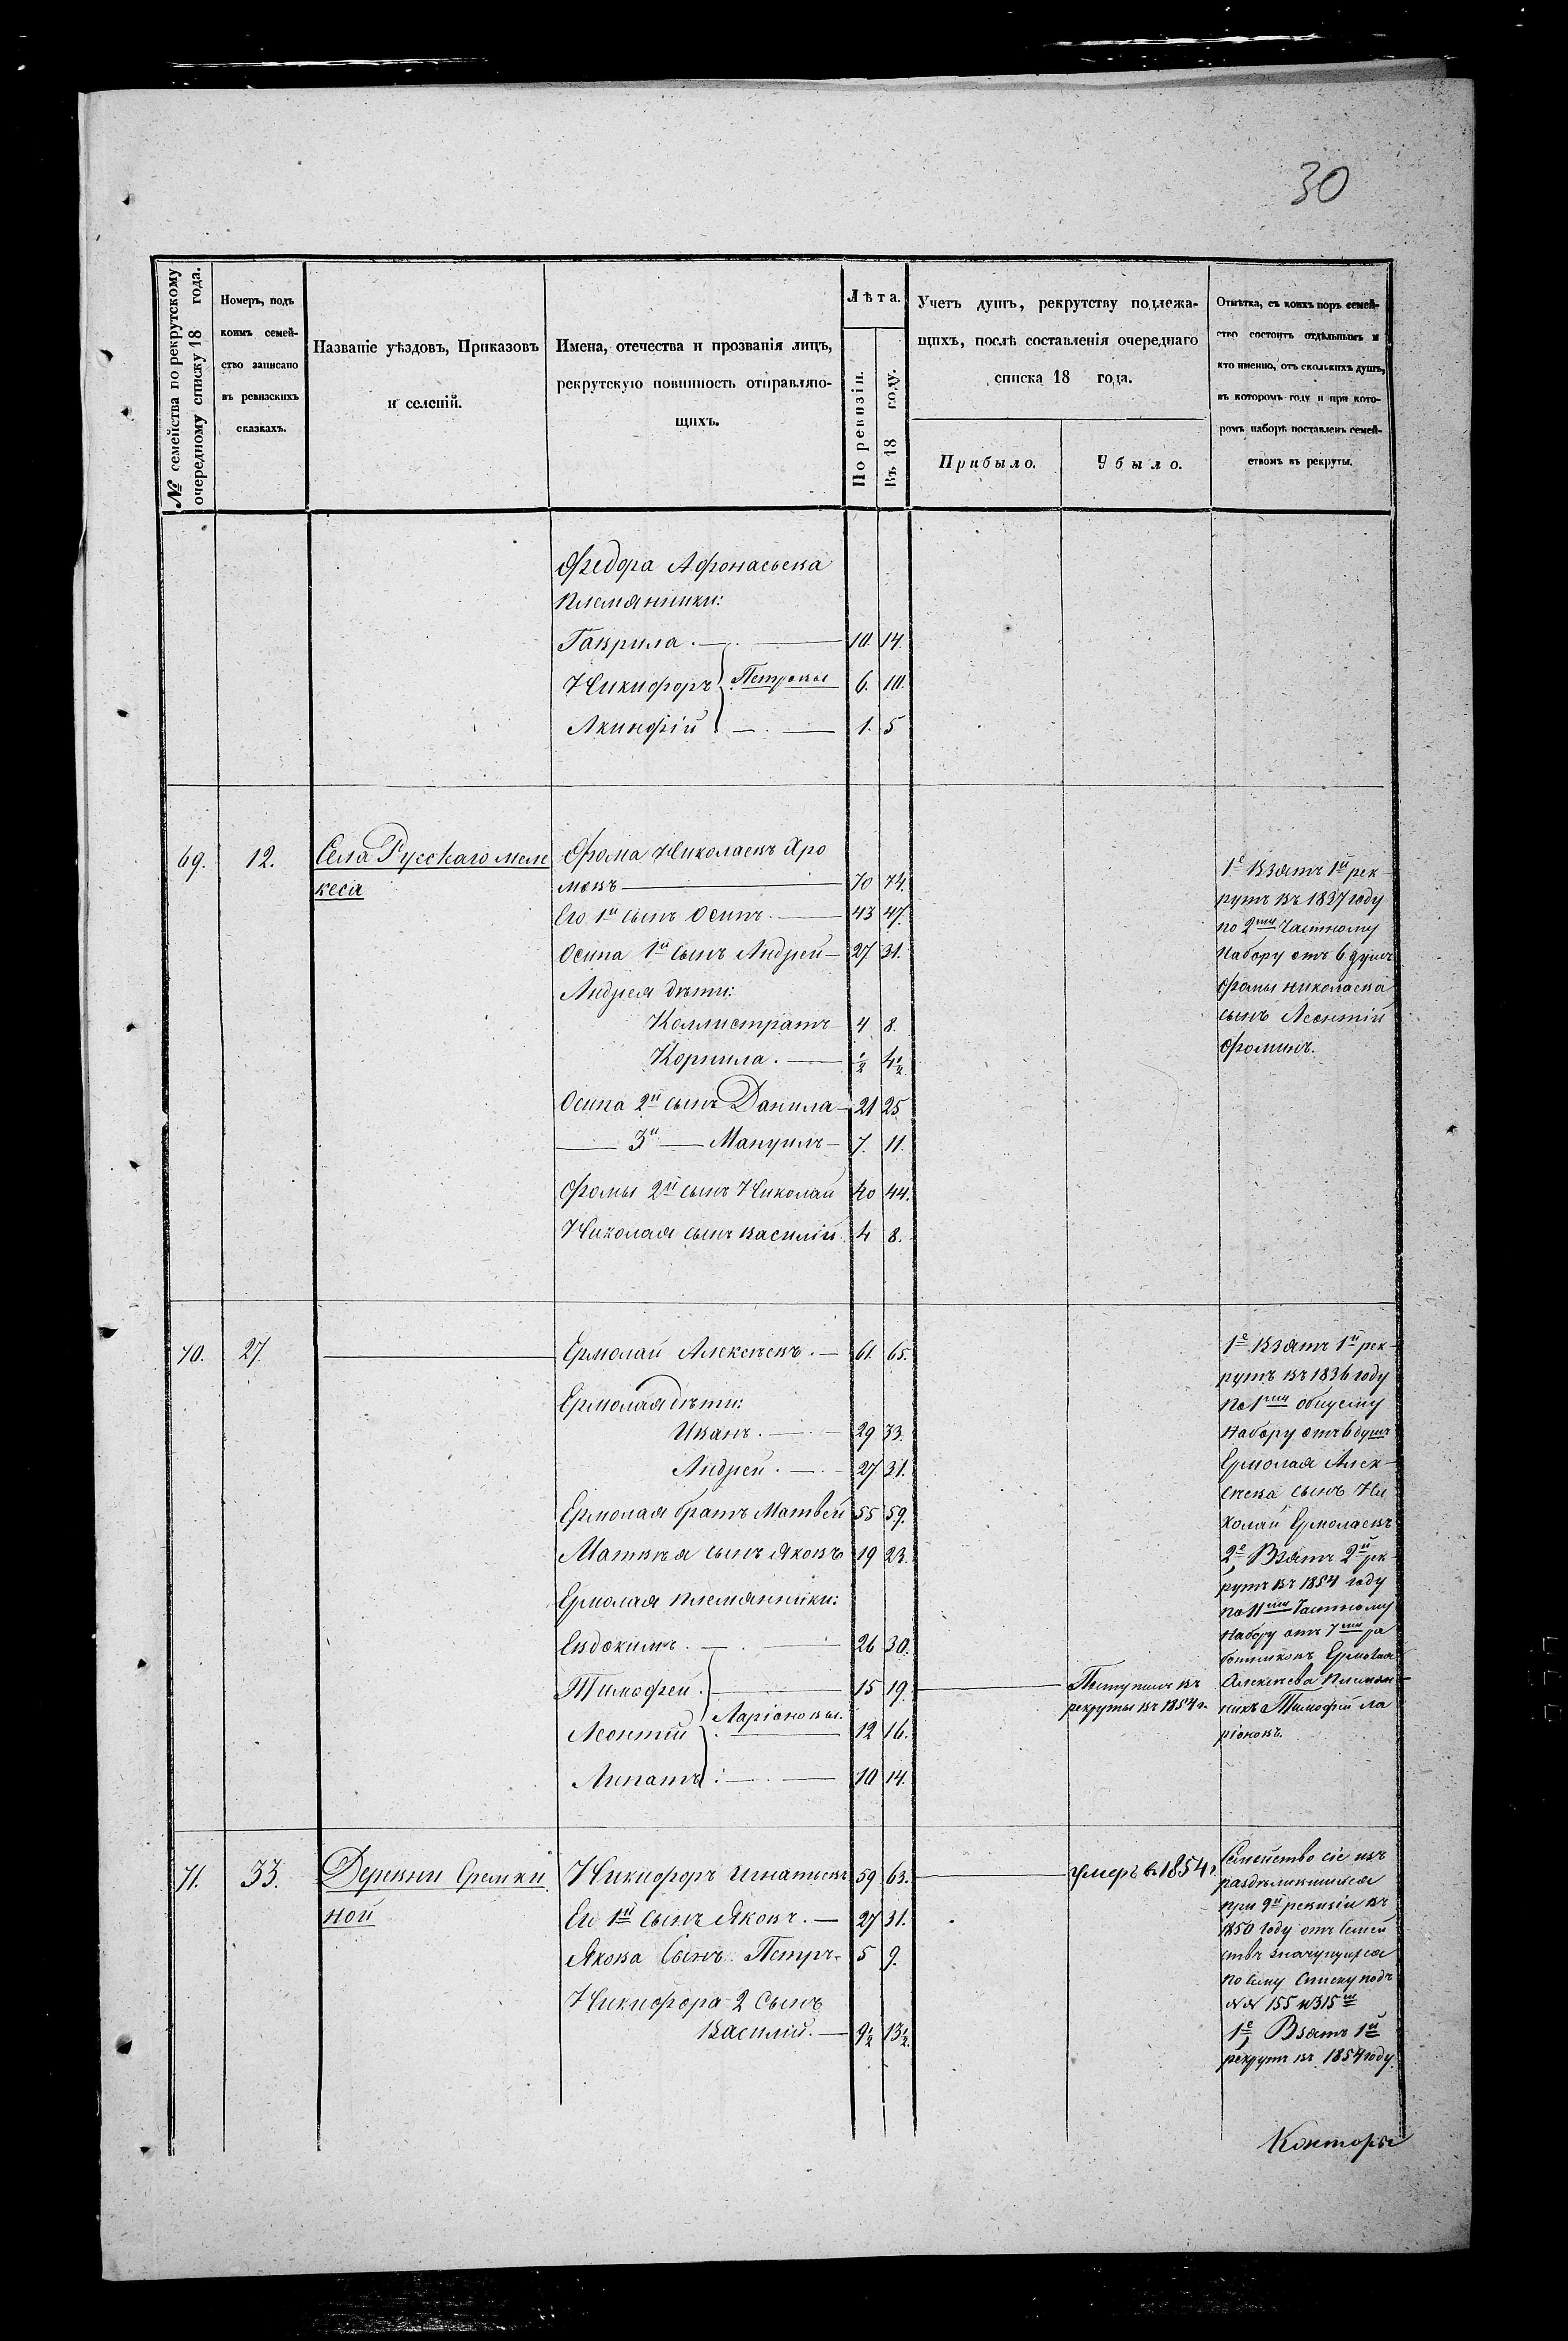 30
№ семейства по рекрутскому
очередному списку 18 года.
Номеръ, подъ
коимъ семей-
ство записано
въ ревизскихъ
сказкахъ.
Названіе уѣздовъ, Приказовъ
и селеній.
Имена, отечества и прозванія лицъ,
рекрутскую повинность отправляю-
щихъ.
Лѣта.
По ревизіи.
Въ 18 году.
Учетъ душъ, рекрутству подлежа-
щихъ, послѣ составленія очереднаго
списка 18 года.
Прибыло.
Убыло.
Отмѣтка, съ коихъ поръ семей-
ство состоитъ отдѣльнымъ и
кто именно, отъ сколькихъ душъ,
въ которомъ году и при кото-
ромъ наборѣ поставленъ семей-
ствомъ въ рекруты.
Федора Афонасьева
племянники:
Гаврила 10. 14.
Никифоръ Петровы 6. 10.
Акинфій 1. 5
69. 12. Села Русскаго Меле
кеса
Фома Николаевъ Хро
мовъ 70 74.
Его 1й сынъ Осипъ 43 47.
Осипа 1й сынъ Андрей 27 31.
Андрея дѣти:
Каллистратъ 4 8.
Корнила 1/2 4 1/2
Осипа 2й сынъ Данила 21 25
3й Мануилъ 7. 11.
Фомы 2й сынъ Николай 40 44.
Николая сынъ Василій 4 8.
1е Взятъ 1й рек-
рутъ въ 1837 году
по 2му Частному
набору отъ 6 душъ
Фомы Николаева
сынъ Леонтій
Фоминъ.
70. 27.
Ермолай Алексѣевъ 61. 65.
Ермолая дѣти:
Иванъ 29 33.
Андрей 27 31.
Ермолая братъ Матвей 55 59.
Матвѣя сынъ Яковъ 19 23.
Ермолая племянники:
Евдокимъ 26 30.
Тимофей 15 19.
Ларіоновы.
Леонтій 12 16.
Липатъ 10 14.
Поступилъ въ
рекруты въ 1854 г.
1е Взятъ 1й рек-
рутъ въ 1836 году
по 1му общему
набору отъ 6 душъ
Ермолая Алек-
сѣева сынъ Ни
колай Ермолаевъ
2е, Взятъ 2й рек-
рутъ въ 1854 году
по 11му Частному
набору отъ 7ми ра
ботниковъ Ермолая
Алексѣева племян-
никъ Тимофей Ла
ріоновъ.
71. 33. Деревни Еремки
ной
Никифоръ Игнатьевъ 59 63.
Его 1й сынъ Яковъ 27 31.
Якова сынъ Петръ 5 9.
Никифора 2 сынъ
Василій 9 1/2 13 1/2.
умеръ въ 1854 г.
Семейство сіе изъ
раздѣлившихся
при 9й ревизіи въ
1850 году отъ семей
ствъ значущихся
по сему списку подъ
№№ 155 и 315м
1е, Взятъ 1й
рекрутъ въ 1854 году.
Конторы